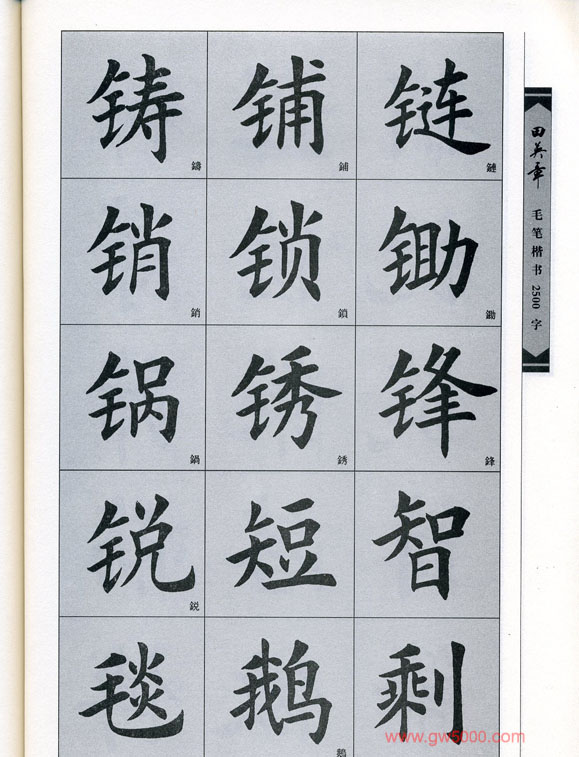 铸 铺 链
鑄 鋪 鏈
销 锁 锄
銷 鎖 鋤
锅 锈 锋
鍋 銹 鋒
锐 短 智
鋭
毯 鹅 剩
鵝
田英章
毛笔楷书2500字
www.gw5000.com